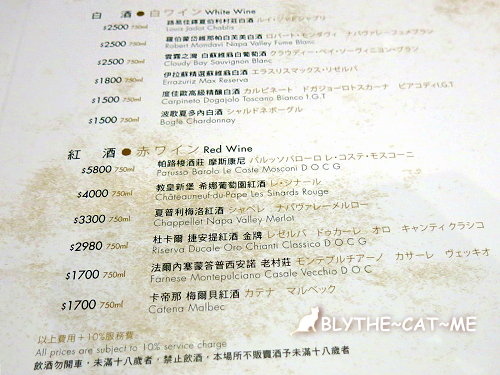 白 酒 ● 白ワイン White Wine
$2500 750ml 路易佳鐸夏伯利村莊白酒 ルイ・ジャドシャブリ
Louis Jadot Chablis
$2500 750ml 羅伯蒙岱維那帕白芙美白酒 ロバート・モンダヴィ ナパヴァレーフュメブラン
Robert Mondavi Napa Valley Fume Blanc
$2500 750ml 雲霧之灣 白蘇維翁白葡萄酒 クラウディー・ベイ・ソーヴィニヨン・ブラン
Cloudy Bay Sauvignon Blanc
$1800 750ml 伊拉蘇精選蘇維翁白酒 エラスリスマックス・リゼルバ
Errazuriz Max Reserva
$1500 750ml 度佳歐高級精釀白酒 カルピネート ドガジョーロトスカーナ ビアコディI.G.T
Carpineto Dogajolo Toscano Bianco I.G.T
$1500 750ml 波歌夏多內白酒 シャルドネボーグル
Bogle Chardonnay
紅 酒 ● 赤ワイン Red Wine
$5800 750ml 帕路梭酒莊 摩斯康尼 パルッソバローロ レ・コステ・モスコーニ
Parusso Barolo Le Coste Mosconi D O C G
$4000 750ml 教皇新堡 希娜葡萄園紅酒 レ・シナール
Châteauneuf-du-Pape Les Sinards Rouge
$3300 750ml 夏普利梅洛紅酒 シャペレ ナパヴァレーメルロー
Chappellet Napa Valley Merlot
$2980 750ml 杜卡爾 捷安提紅酒 金牌 レゼルバ ドゥカーレ オロ キャンティクラシコ
Riserva Ducale Oro Chianti Classico D O C G
$1700 750ml 法爾內塞蒙答普西安諾 老村莊 モンテプルチアーノ カサーレ ヴェッキオ
Farnese Montepulciano Casale Vecchio D O C
$1700 750ml 卡帝那 梅爾貝紅酒 カテナ マルベック
Catena Malbec
以上費用+10%服務費
All prices are subject to 10% service charge
飲酒勿開車，未滿十八歲者，禁止飲酒，本場所不販賣酒予未滿十八歲者
BLYTHE~CAT~ME